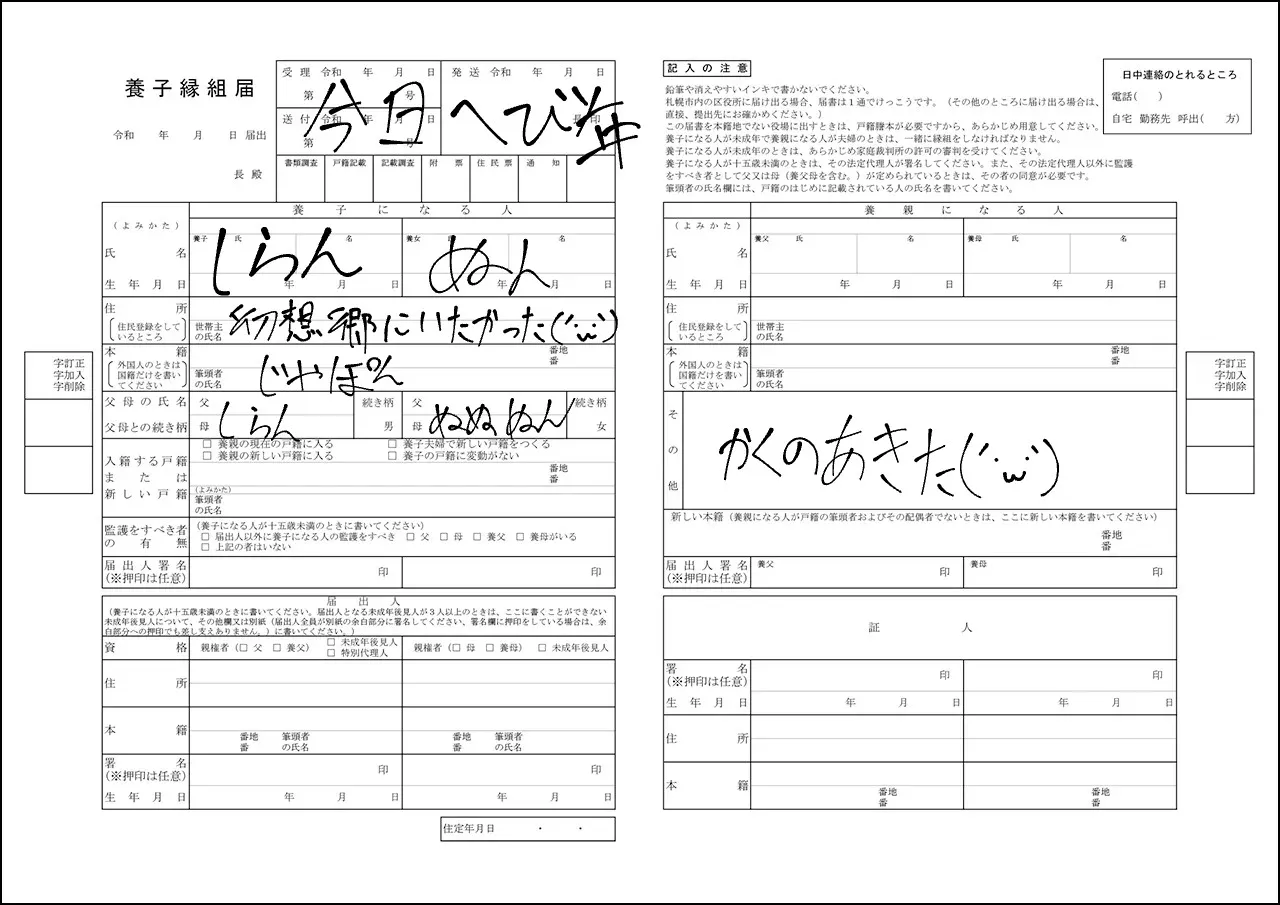 養子縁組届
令和 年 月 日 届出
長 殿
受理 令和 年 月 日
発送 令和 年 月 日
第 号
送付 令和 年 月 日
長印
第 号
今日 へび年
書類調査 戸籍記載 記載調査 附票 住民票 通知
養子になる人
(よみかた)
氏名
養子 氏 名
養女 氏 名
しらん
ぬん
生年月日
年 月 日
年 月 日
住所
(住民登録をしているところ)
世帯主の氏名
幻想郷にいたかった(´・ω・`)
本籍
(外国人のときは国籍だけを書いてください)
番地
番
筆頭者の氏名
じゃぽん
父母の氏名
父母との続き柄
父
母
しらん
続き柄
男
父
母
ぬぬ ぬん
続き柄
女
入籍する戸籍または新しい戸籍
□ 養親の現在の戸籍に入る
□ 養子夫婦で新しい戸籍をつくる
□ 養親の新しい戸籍に入る
□ 養子の戸籍に変動がない
番地
番
(よみかた)
筆頭者の氏名
監護をすべき者の有無
(養子になる人が十五歳未満のときに書いてください)
□ 届出人以外に養子になる人の監護をすべき □ 父 □ 母 □ 養父 □ 養母がいる
□ 上記の者はいない
届出人署名
(※押印は任意)
印
印
届出人
(養子になる人が十五歳未満のときに書いてください。届出人となる未成年後見人が3人以上のときは、ここに書くことができない
未成年後見人について、その他欄又は別紙(届出人全員が別紙の余白部分に署名してください、署名欄に押印をしている場合は、余
白部分への押印でも差し支えありません。)に書いてください。)
資格
親権者(□ 父 □ 養父) □ 未成年後見人 □ 特別代理人
親権者(□ 母 □ 養母) □ 未成年後見人
住所
本籍
番地
番
筆頭者の氏名
番地
番
筆頭者の氏名
署名
(※押印は任意)
印
印
生年月日
年 月 日
年 月 日
住定年月日 ・ ・
字訂正
字加入
字削除
記入の注意
鉛筆や消えやすいインキで書かないでください。
札幌市内の区役所に届け出る場合、届書は1通でけっこうです。(その他のところに届け出る場合は、
直接、提出先にお確かめください。)
この届書を本籍地でない役場に出すときは、戸籍謄本が必要ですから、あらかじめ用意してください。
養子になる人が未成年で養親になる人が夫婦のときは、一緒に縁組をしなければなりません。
養子になる人が未成年のときは、あらかじめ家庭裁判所の許可の審判を受けてください。
養子になる人が十五歳未満のときは、その法定代理人が署名してください。また、その法定代理人以外に監護
をすべき者として父又は母(養父母を含む。)が定められているときは、その者の同意が必要です。
筆頭者の氏名欄には、戸籍のはじめに記載されている人の氏名を書いてください。
日中連絡のとれるところ
電話( )
自宅 勤務先 呼出( 方)
養親になる人
(よみかた)
氏名
養父 氏 名
養母 氏 名
生年月日
年 月 日
年 月 日
住所
(住民登録をしているところ)
世帯主の氏名
本籍
(外国人のときは国籍だけを書いてください)
番地
番
筆頭者の氏名
その他
かくのあきた(´・ω・`)
新しい本籍(養親になる人が戸籍の筆頭者およびその配偶者でないときは、ここに新しい本籍を書いてください)
番地
番
届出人署名
(※押印は任意)
養父 印
養母 印
証人
署名
(※押印は任意)
印
印
生年月日
年 月 日
年 月 日
住所
本籍
番地
番
番地
番
字訂正
字加入
字削除